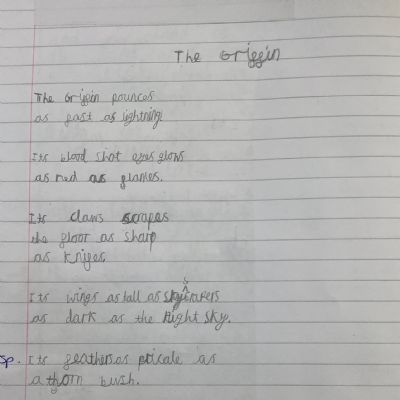 The Griffin
The Griffin pounces
as fast as lightning!
Its blood shot eyes glows
as red as flames.
Its claws scrapes
the floor as sharp
as knifes.
Its wings as tall as skyscrapers
as dark as the night sky.
sp. Its feathers as pricale as
a thorn bush.